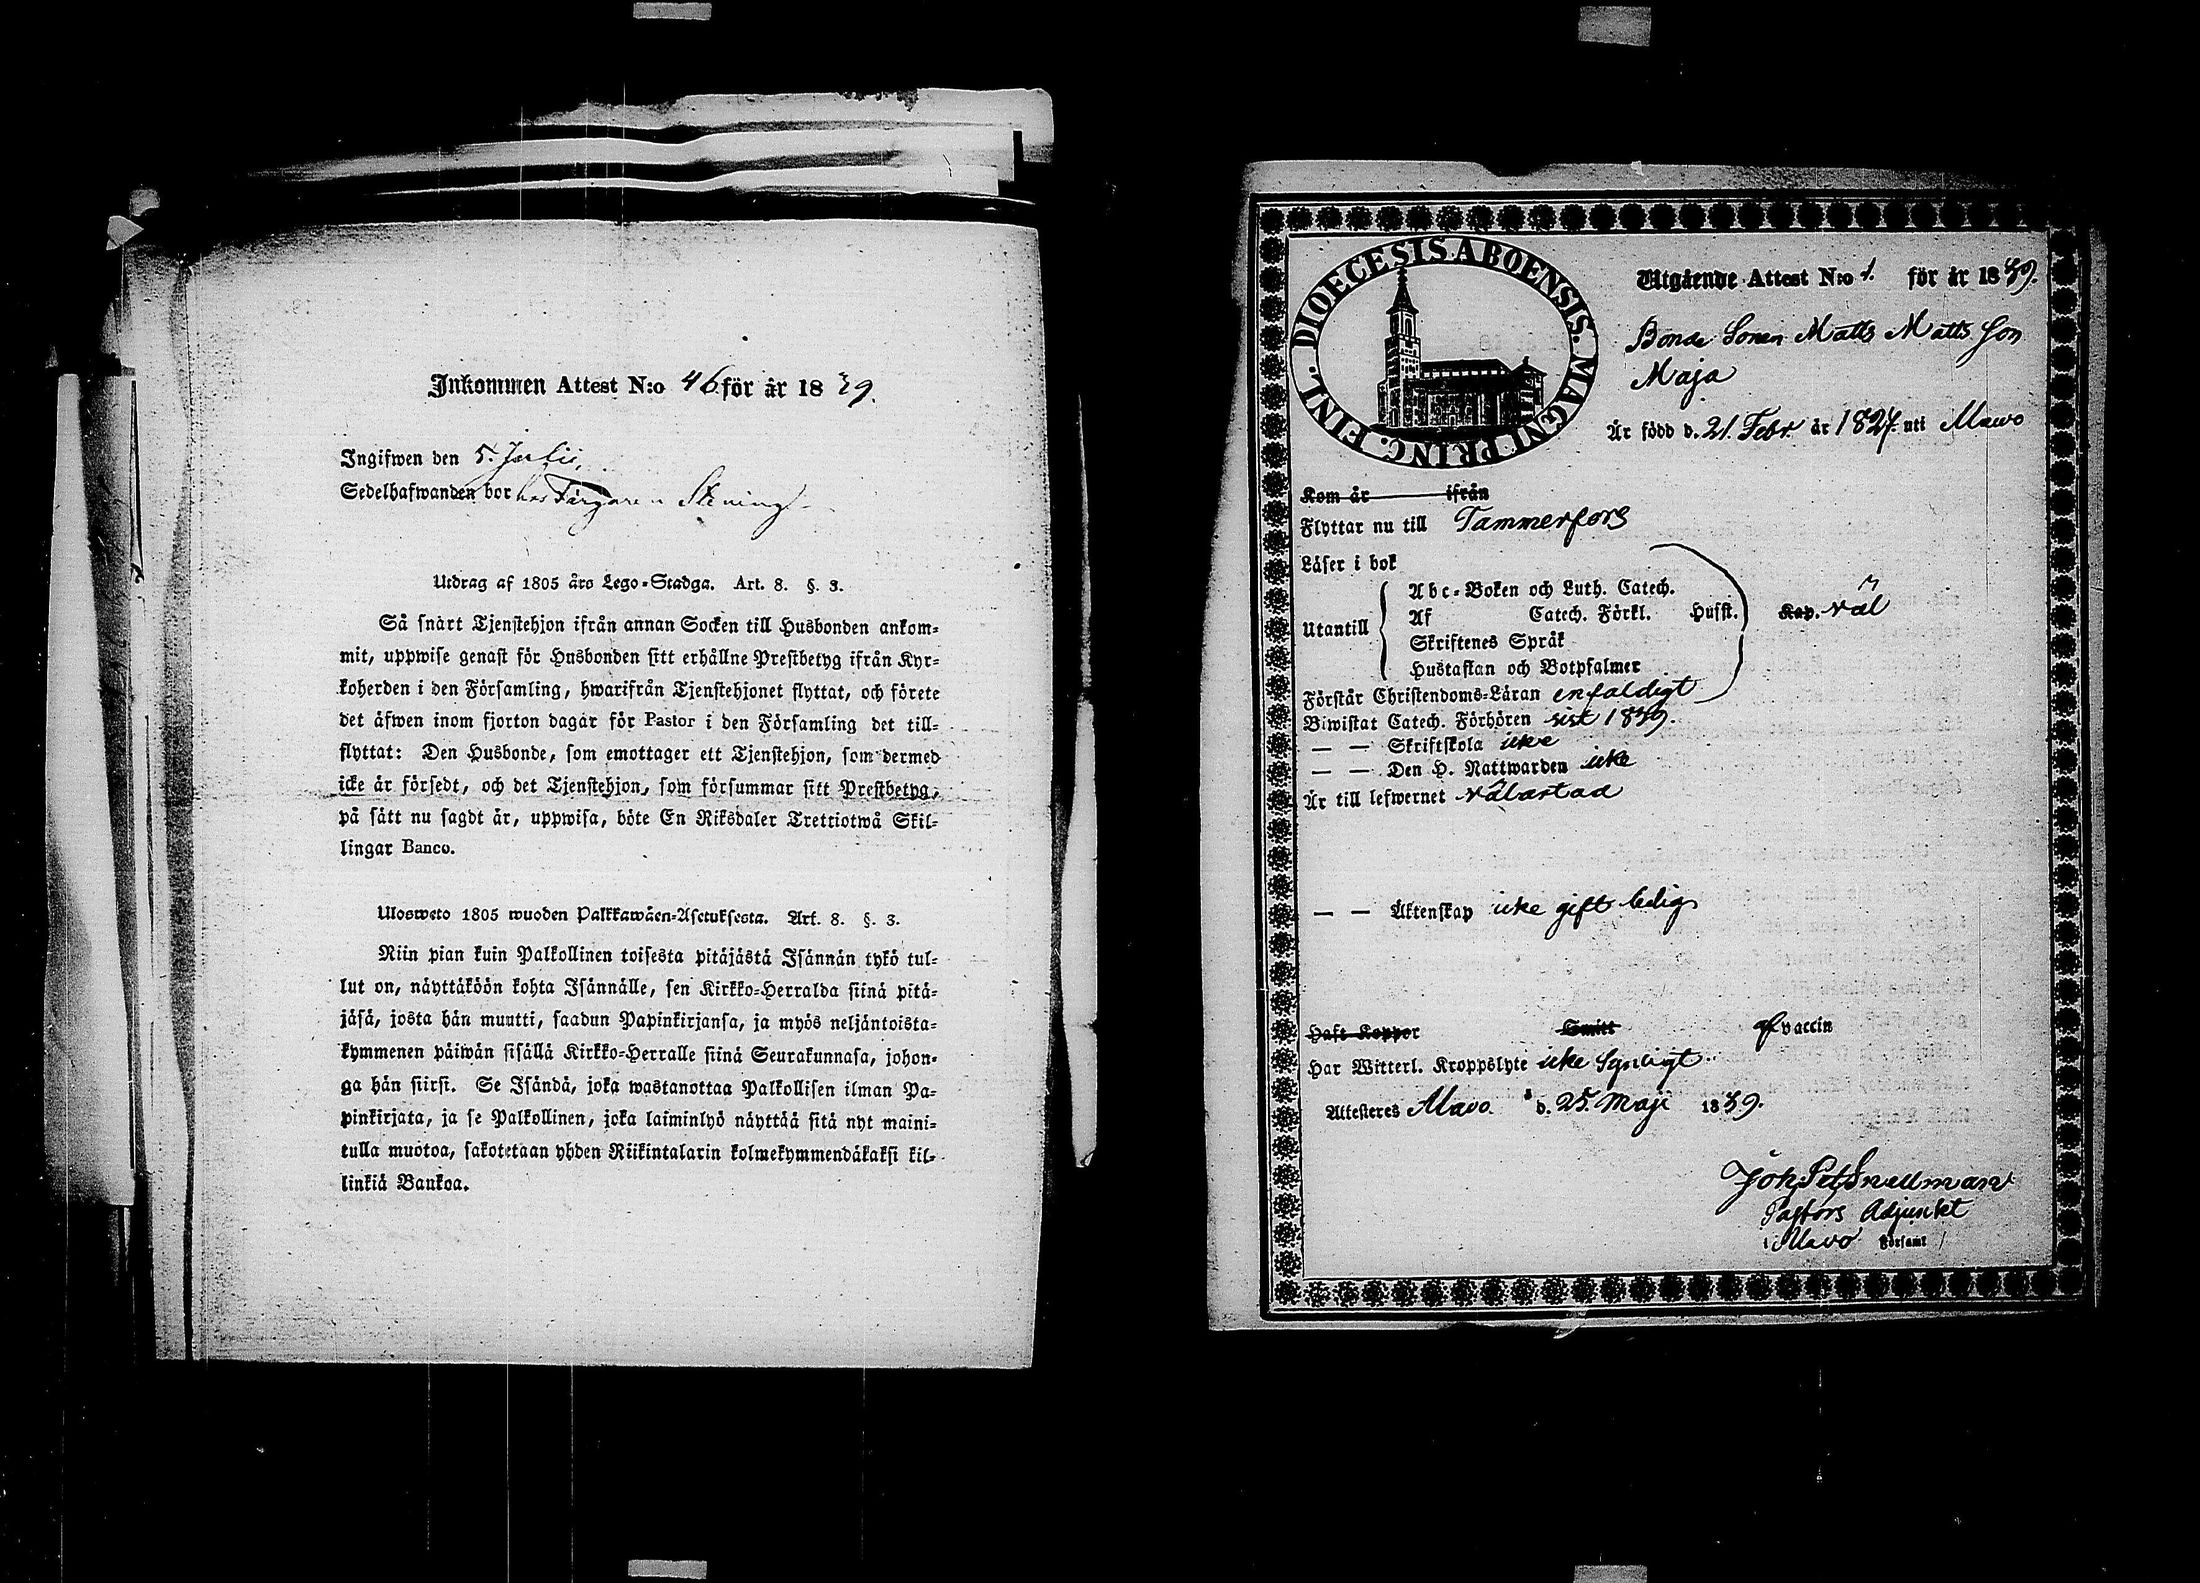 Inkommen Attest N:o 46 för år 1839.
Ingifwen den 5. Julii,
Sedelhafwanden bor hos Färgaren Stening
Utdrag af 1805 års Lego-Stadga. Art. 8. §. 3.
Så snart Tjenstehjon ifrån annan Socken till Husbonden ankom-
mit, uppwise genast för Husbonden sitt erhållne Prestbetyg ifrån Kyr-
koherden i den Församling, hwarifrån Tjenstehjonet flyttat, och förete
det äfwen inom fjorton dagar för Pastor i den Församling det till-
flyttat: Den Husbonde, som emottager ett Tjenstehjon, som dermed
icke är försedt, och det Tjenstehjon, som försummar sitt Prestbetyg,
på sätt nu sagdt är, uppwisa, böte En Riksdaler Trettiotwå Skil-
lingar Banco.
Ulosweto 1805 wuoden Palkkawäen-Asetuksesta. Art. 8. §. 3.
Niin pian kuin Palkollinen toisesta pitäjästä Isännän tykö tul-
lut on, näyttäköön kohta Isännälle, sen Kirkko-Herralda siinä pitä-
jäsä, josta hän muutti, saadun Papinkirjansa, ja myös neljäntoista-
kymmenen päiwän sisällä Kirkko-Herralle siinä Seurakunnasa, johon-
ga hän siirsi. Se Isändä, joka wastanottaa Palkollisen ilman Pa-
pinkirjata, ja se Palkollinen, joka laiminlyö näyttää sitä nyt maini-
tulla muotoa, sakotetaan yhden Riikintalarin kolmekymmendäkaksi kil-
linkiä Bankoa.
DIOECESIS ABOENSIS. MAGNI PRINC. FINL.
Utgående Attest N:o 1. för år 1839.
Bonde Sonen Matts Matts Son
Maja
Är född d. 21. Febr. år 1827. uti Mawo
Kom år ifrån
Flyttar nu till Tammerfors
Läser i bok
Utantill
Abc-Boken och Luth. Catech.
Af Catech. Förkl. Husst. Kap. väl
Skriftenes Språk
Hustaflan och Botpsalmer
Förstår Christendoms-Läran enfaldigt
Biwistat Catech. Förhören sist 1839.
— — Skriftskola icke
— — Den H. Nattwarden icke
Är till lefwernet välartad
— — Äktenskap icke gift ledig
Haft Koppor Smitt af vaccin
Har Witterl. Kroppslyte icke Synligt
Attesteres Mavo d. 25. Maji 1839.
Joh Pet Snellman
Pastors Adjunkt
i Mavo Församl